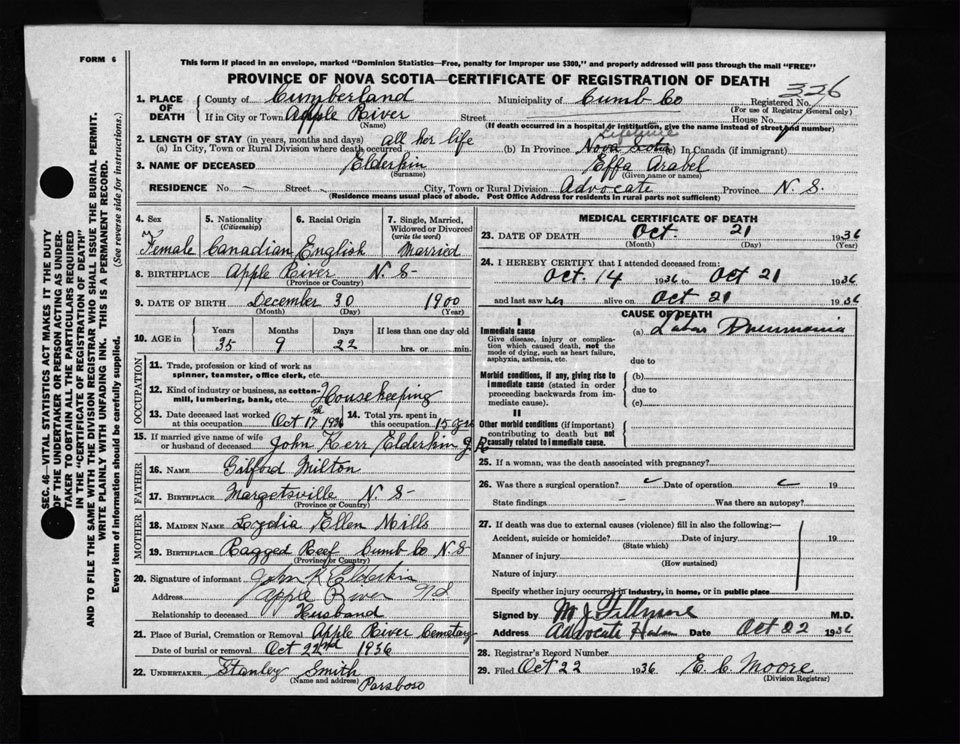 FORM 6
This form if placed in an envelope, marked "Dominion Statistics—Free, penalty for improper use $300," and properly addressed will pass through the mail "FREE"
PROVINCE OF NOVA SCOTIA—CERTIFICATE OF REGISTRATION OF DEATH
326
1. PLACE OF DEATH County of Cumberland Municipality of Cumb Co Registered No.
If in City or Town Apple River Street (For use of Registrar General only)
(Name) (If death occurred in a hospital or institution, give the name instead of street and number)
2. LENGTH OF STAY (in years, months and days) all her life
(a) In City, Town or Rural Division where death occurred (b) In Province Nova Scotia (c) In Canada (if immigrant)
3. NAME OF DECEASED Elderkin Effa Arabel
(Surname) (Given name or names)
RESIDENCE No – Street – City, Town or Rural Division Advocate Province N. S.
(Residence means usual place of abode. Post Office Address for residents in rural parts not sufficient)
SEC. 46—VITAL STATISTICS ACT MAKES IT THE DUTY
OF THE UNDERTAKER OR PERSON ACTING AS UNDER-
TAKER TO OBTAIN ALL THE PARTICULARS REQUIRED
IN THE "CERTIFICATE OF REGISTRATION OF DEATH"
AND TO FILE THE SAME WITH THE DIVISION REGISTRAR WHO SHALL ISSUE THE BURIAL PERMIT.
WRITE PLAINLY WITH UNFADING INK. THIS IS A PERMANENT RECORD.
Every item of information should be carefully supplied. (See reverse side for instructions.)
4. Sex 5. Nationality 6. Racial Origin 7. Single, Married,
(Citizenship) Widowed or Divorced
(write the word)
Female Canadian English Married
8. BIRTHPLACE Apple River N. S-
(Province or Country)
9. DATE OF BIRTH December 30 1900
(Month) (Day) (Year)
10. AGE in Years Months Days If less than one day old
35 9 22 hrs. or min.
OCCUPATION
11. Trade, profession or kind of work as
spinner, teamster, office clerk, etc.
12. Kind of industry or business, as cotton-
mill, lumbering, bank, etc. Housekeeping
13. Date deceased last worked 14. Total yrs. spent in
at this occupation Oct 17th 1936 this occupation 15 yrs
15. If married give name of wife
or husband of deceased John Kerr Elderkin
FATHER
16. NAME Gilford Milton
17. BIRTHPLACE Margetsville N. S-
(Province or Country)
MOTHER
18. MAIDEN NAME Lydia Ellen Mills
19. BIRTHPLACE Ragged Reef Cumb Co N. S
(Province or Country)
20. Signature of informant John K Elderkin
Address Apple River N S
Relationship to deceased Husband
21. Place of Burial, Cremation or Removal Apple River Cemetary
Date of burial or removal Oct 22nd 1936
22. UNDERTAKER Stanley Smith
(Name and address) Parsboro
MEDICAL CERTIFICATE OF DEATH
23. DATE OF DEATH Oct. 21 1936
(Month) (Day) (Year)
24. I HEREBY CERTIFY that I attended deceased from:
Oct. 14 1936 to Oct 21 1936
and last saw her alive on Oct 21 1936
CAUSE OF DEATH
I
Immediate cause (a) Lobar Pneumonia
Give disease, injury or complica-
tion which caused death, not the
mode of dying, such as heart failure,
asphyxia, asthenia, etc. due to
Morbid conditions, if any, giving rise to (b)
immediate cause (stated in order due to
proceeding backwards from im-
mediate cause). (c)
II
Other morbid conditions (if important)
contributing to death but not
causally related to immediate cause.
25. If a woman, was the death associated with pregnancy?
26. Was there a surgical operation? Date of operation 19
State findings – Was there an autopsy?
27. If death was due to external causes (violence) fill in also the following:—
Accident, suicide or homicide? Date of injury 19
(State which)
Manner of injury
(How sustained)
Nature of injury
Specify whether injury occurred in industry, in home, or in public place
Signed by M. J. Fillmore M.D.
Address Advocate Date Oct 22 1936
28. Registrar's Record Number
29. Filed Oct 22 1936 E. C. Moore
(Division Registrar)